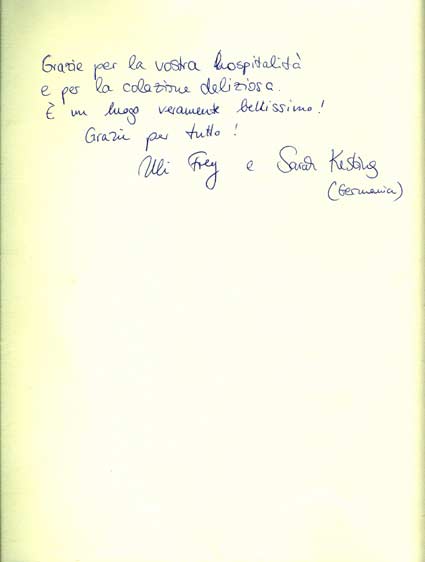 Grazie per la vostra hospitalità
e per la colazione deliziosa.
È un luogo veramente bellissimo!
Grazie per tutto!
Uli Frey e Sarah Kesting
(Germania)